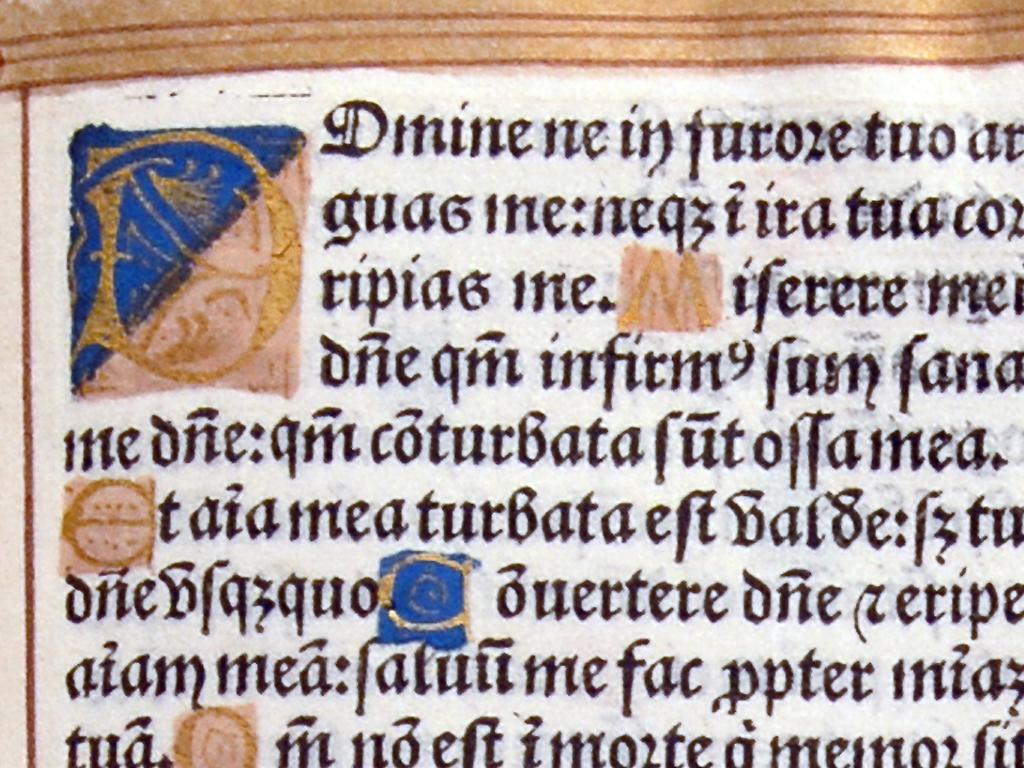 D Dmine ne in furore tuo ar
guas me: neqꝫ ī ira tua cor
ripias me. Miserere mei
dn̄e qm̄ infirmꝰ sum sana
me dn̄e: qm̄ cōturbata sūt ossa mea.
Et aīa mea turbata est valde: sꝫ tu
dn̄e vsqꝫquo Cōuertere dn̄e ⁊ eripe
aīam meā: saluū me fac ꝓpter mīaꝫ
tuā. Qm̄ nō est ī morte q̇ memor sit